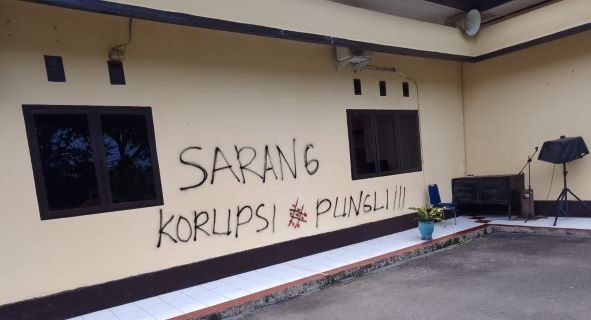 SARANG
KORUPSI # PUNGLI!!!